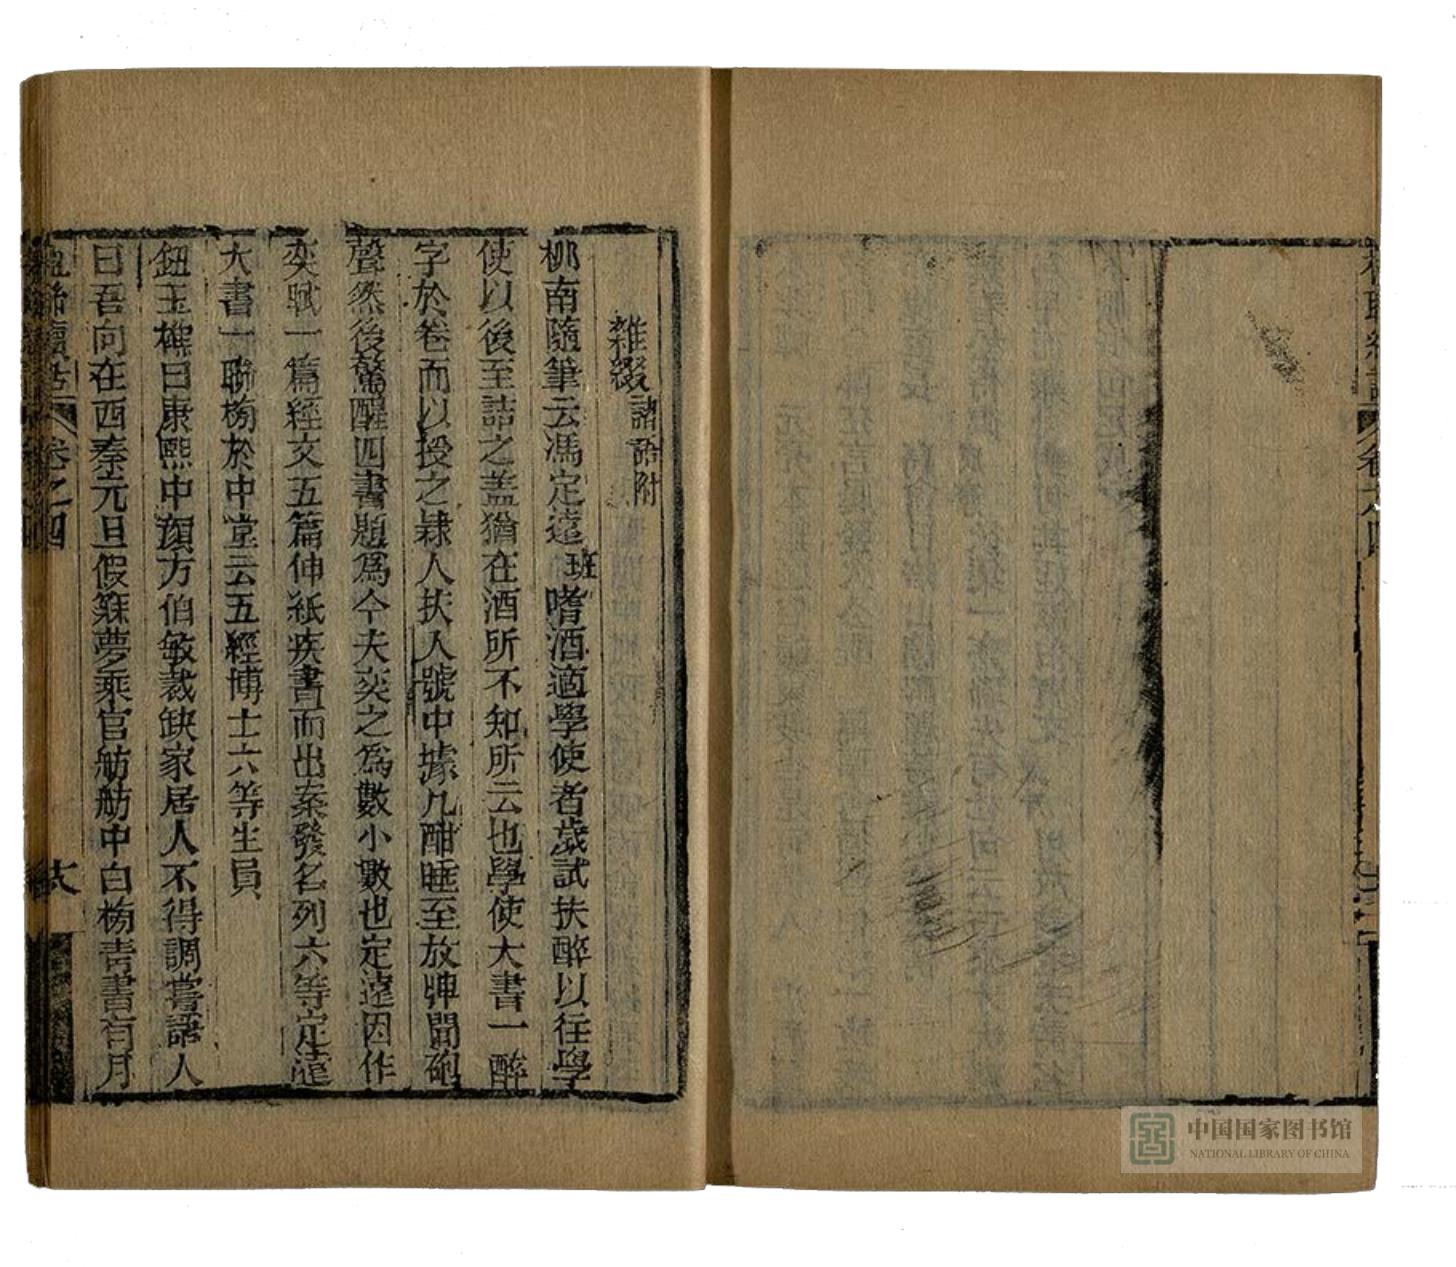 雜綴諧語附
柳南隨筆云馮定遠班嗜酒適學使者歲試扶醉以往學
使以後至詰之盖猶在酒所不知所云也學使大書一醉
字於卷而以授之隷人扶入號中據几酣睡至放牌聞砲
聲然後驚醒四書題為今夫奕之為數小數也定遠因作
奕賦一篇經文五篇伸紙疾書而出案發名列六等定遠
大書一聯榜於中堂云五經博士六等生員
鈕玉樵曰康熙中顏方伯敏裁缺家居人不得調嘗語人
曰吾向在西秦元旦假寐夢乘官舫舫中白榜青書有月
卷之四
中国国家图书馆
NATIONAL LIBRARY OF CHINA